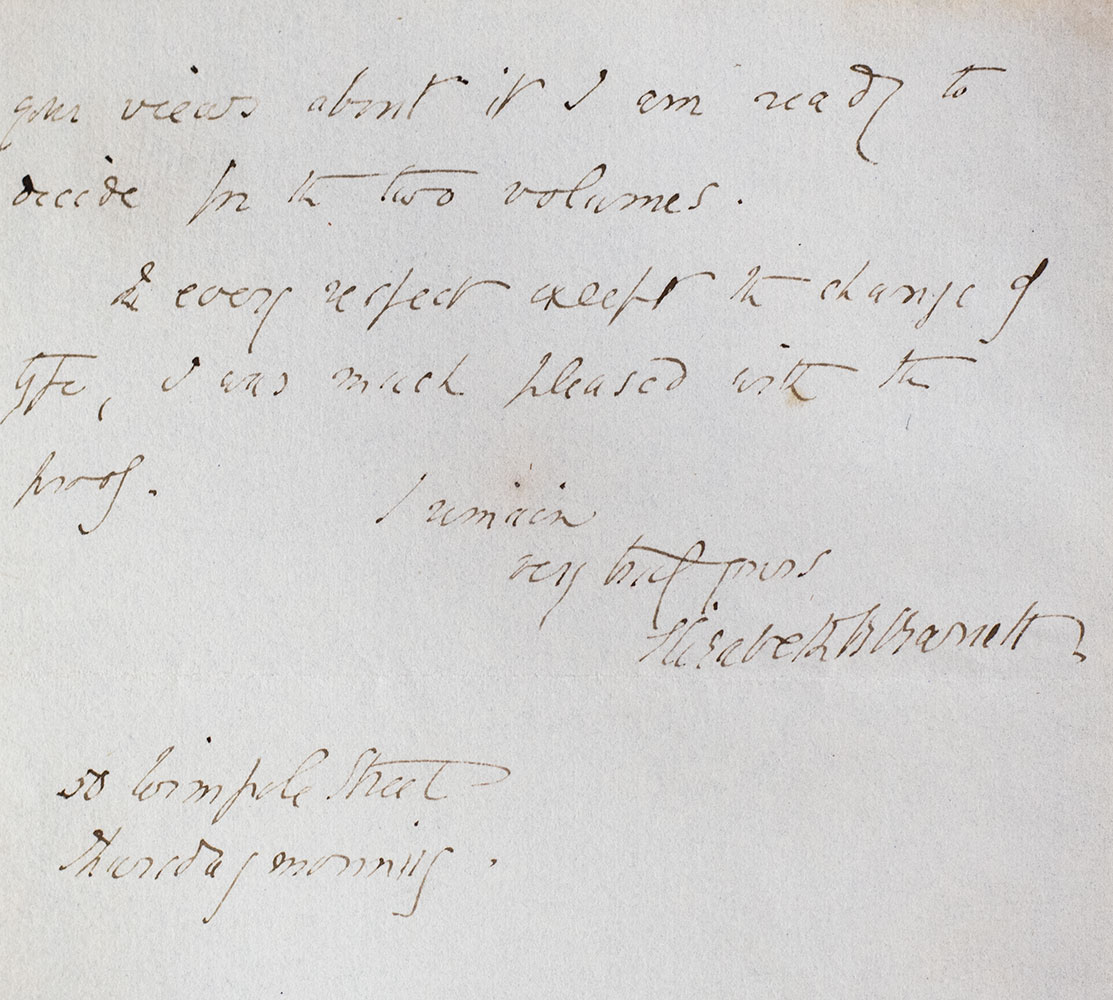 your views about it I am ready to
decide for the two volumes.
In every respect except the change of
type, I was much pleased with the
proof.
I remain
very truly yours
Elizabeth B Barrett
50 Wimpole Street
Thursday morning.